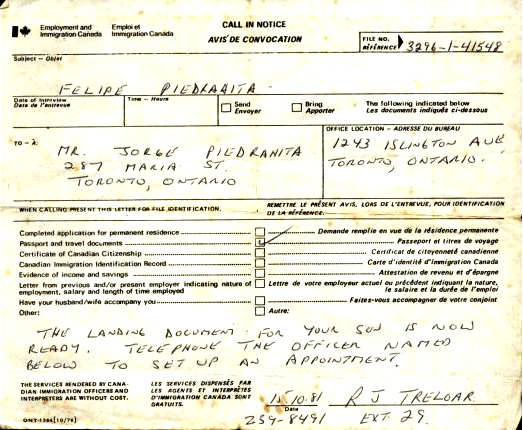 Employment and Immigration Canada
Emploi et Immigration Canada
CALL IN NOTICE
AVIS DE CONVOCATION
FILE NO.
RÉFÉRENCE
3296-1-41548
Subject — Objet
FELIPE PIEDRAHITA
Date of interview
Date de l'entrevue
Time — Heure
Send
Envoyer
Bring
Apporter
The following indicated below
Les documents indiqués ci-dessous
TO — À:
MR. JORGE PIEDRAHITA
287 MARIA ST.
TORONTO, ONTARIO
OFFICE LOCATION — ADRESSE DU BUREAU
1243 ISLINGTON AVE
TORONTO, ONTARIO.
WHEN CALLING PRESENT THIS LETTER FOR FILE IDENTIFICATION.
REMETTRE LE PRÉSENT AVIS, LORS DE L'ENTREVUE, POUR IDENTIFICATION
DE LA RÉFÉRENCE.
Completed application for permanent residence
Demande remplie en vue de la résidence permanente
Passport and travel documents
Passeport et titres de voyage
Certificate of Canadian Citizenship
Certificat de citoyenneté canadienne
Canadian Immigration Identification Record
Carte d'identité d'Immigration Canada
Evidence of income and savings
Attestation de revenu et d'épargne
Letter from previous and/or present employer indicating nature of
employment, salary and length of time employed
Lettre de votre employeur actuel ou précédent indiquant la nature,
le salaire et la durée de l'emploi
Have your husband/wife accompany you
Faites-vous accompagner de votre conjoint
Other:
Autre:
THE LANDING DOCUMENT FOR YOUR SON IS NOW
READY. TELEPHONE THE OFFICER NAMED
BELOW TO SET UP AN APPOINTMENT.
THE SERVICES RENDERED BY CANA-
DIAN IMMIGRATION OFFICERS AND
INTERPRETERS ARE WITHOUT COST.
LES SERVICES DISPENSÉS PAR
LES AGENTS ET INTERPRÈTES
D'IMMIGRATION CANADA SONT
GRATUITS.
15.10.81
Date
R J TRELOAR
259-8491
EXT 29.